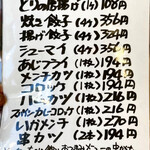 とりの唐揚げ(1ケ)108円
炊き餃子(4ケ)356円
揚げ餃子(4ケ)324円
シューマイ(4ケ)356円
あじフライ(1枚)194円
メンチカツ(1枚)194円
コロッケ(1枚)194円
ハムカツ(1枚)216円
スイカンカレーコロッケ(1枚)216円
いかメンチ(1枚)270円
串カツ(2本)194円